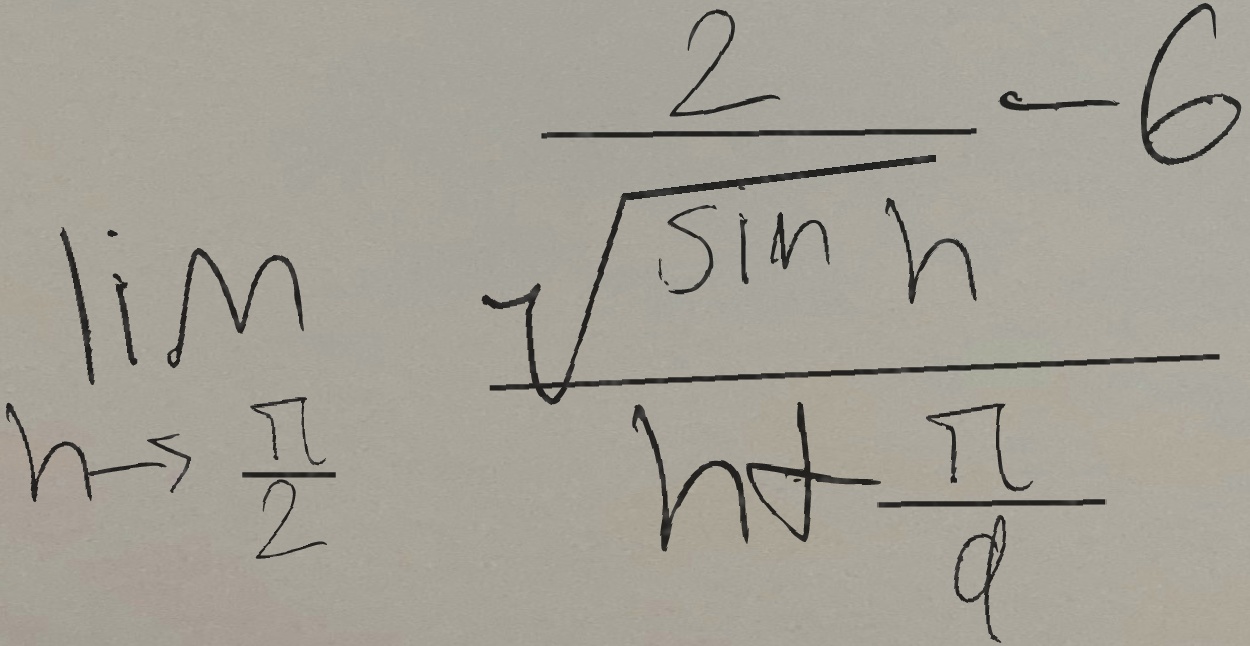 \lim_{h \to \frac{\pi}{2}} \frac{\frac{2}{\sqrt{\sin h}} - 6}{h + \frac{\pi}{9}}